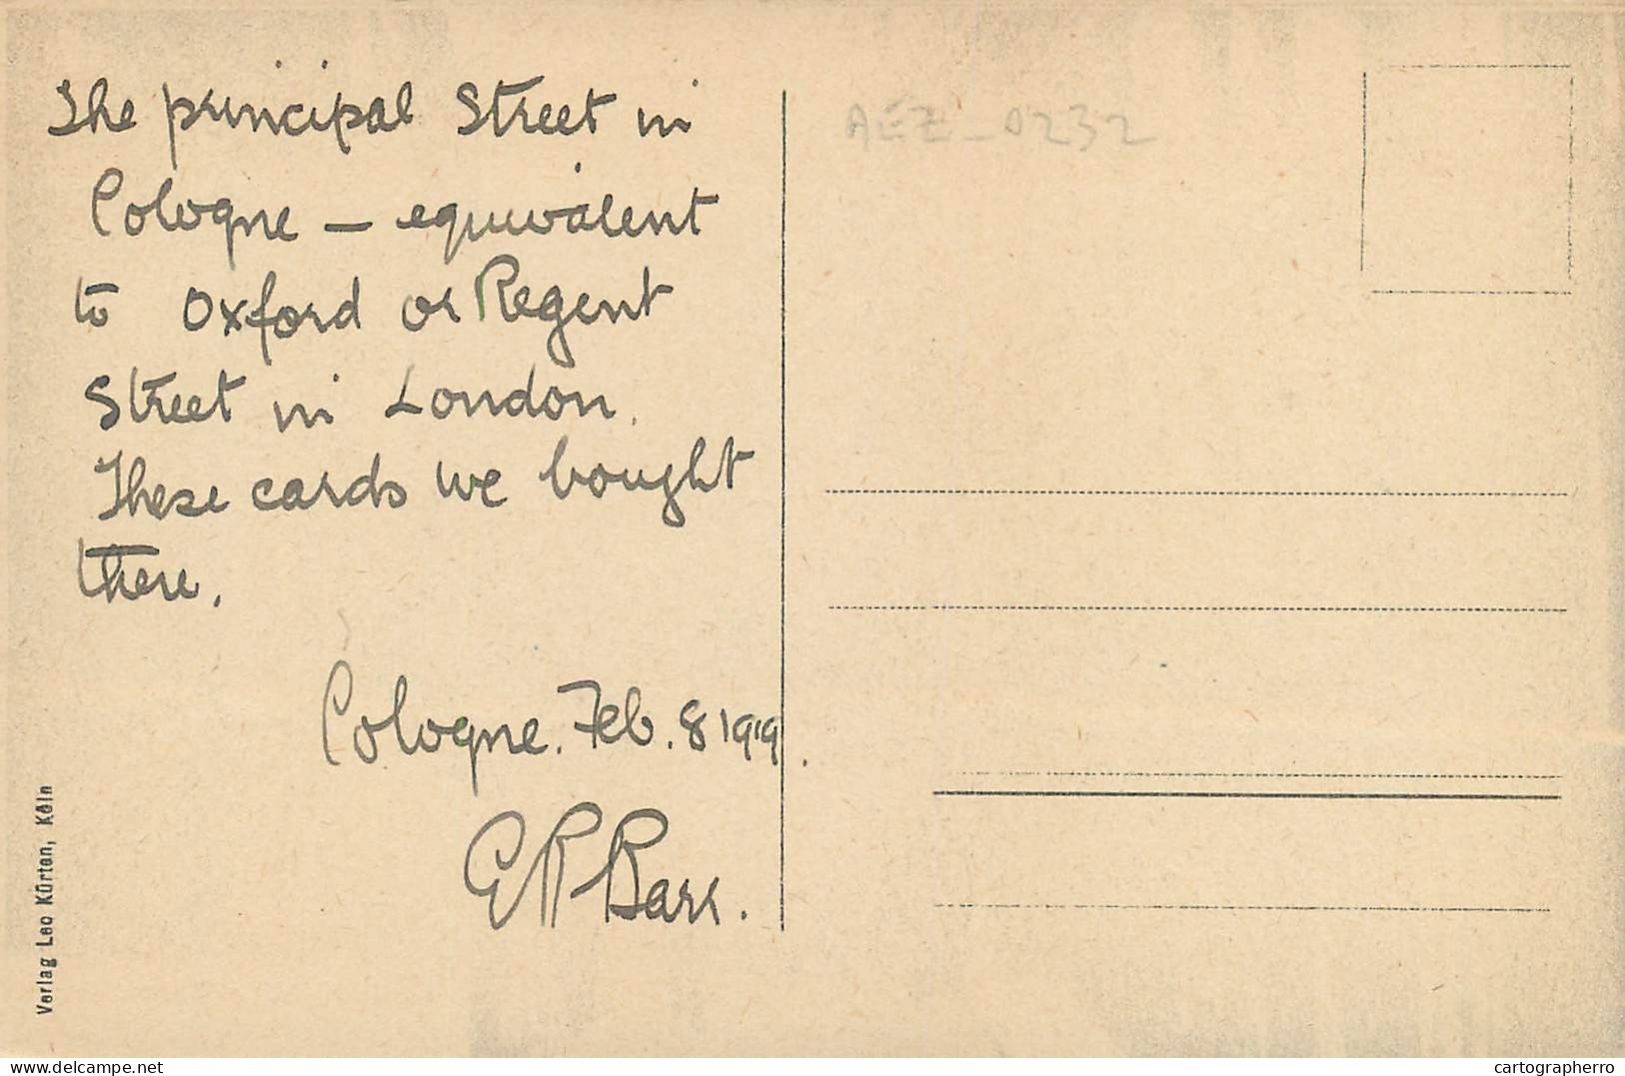 The principal Street in
Cologne — equivalent
to Oxford or Regent
Street in London.
These cards we bought
there.
Cologne. Feb. 8 1919.
E R Barr.
Verlag Leo Kürten, Köln
AEZ-0232
delcampe.net
cartographerro